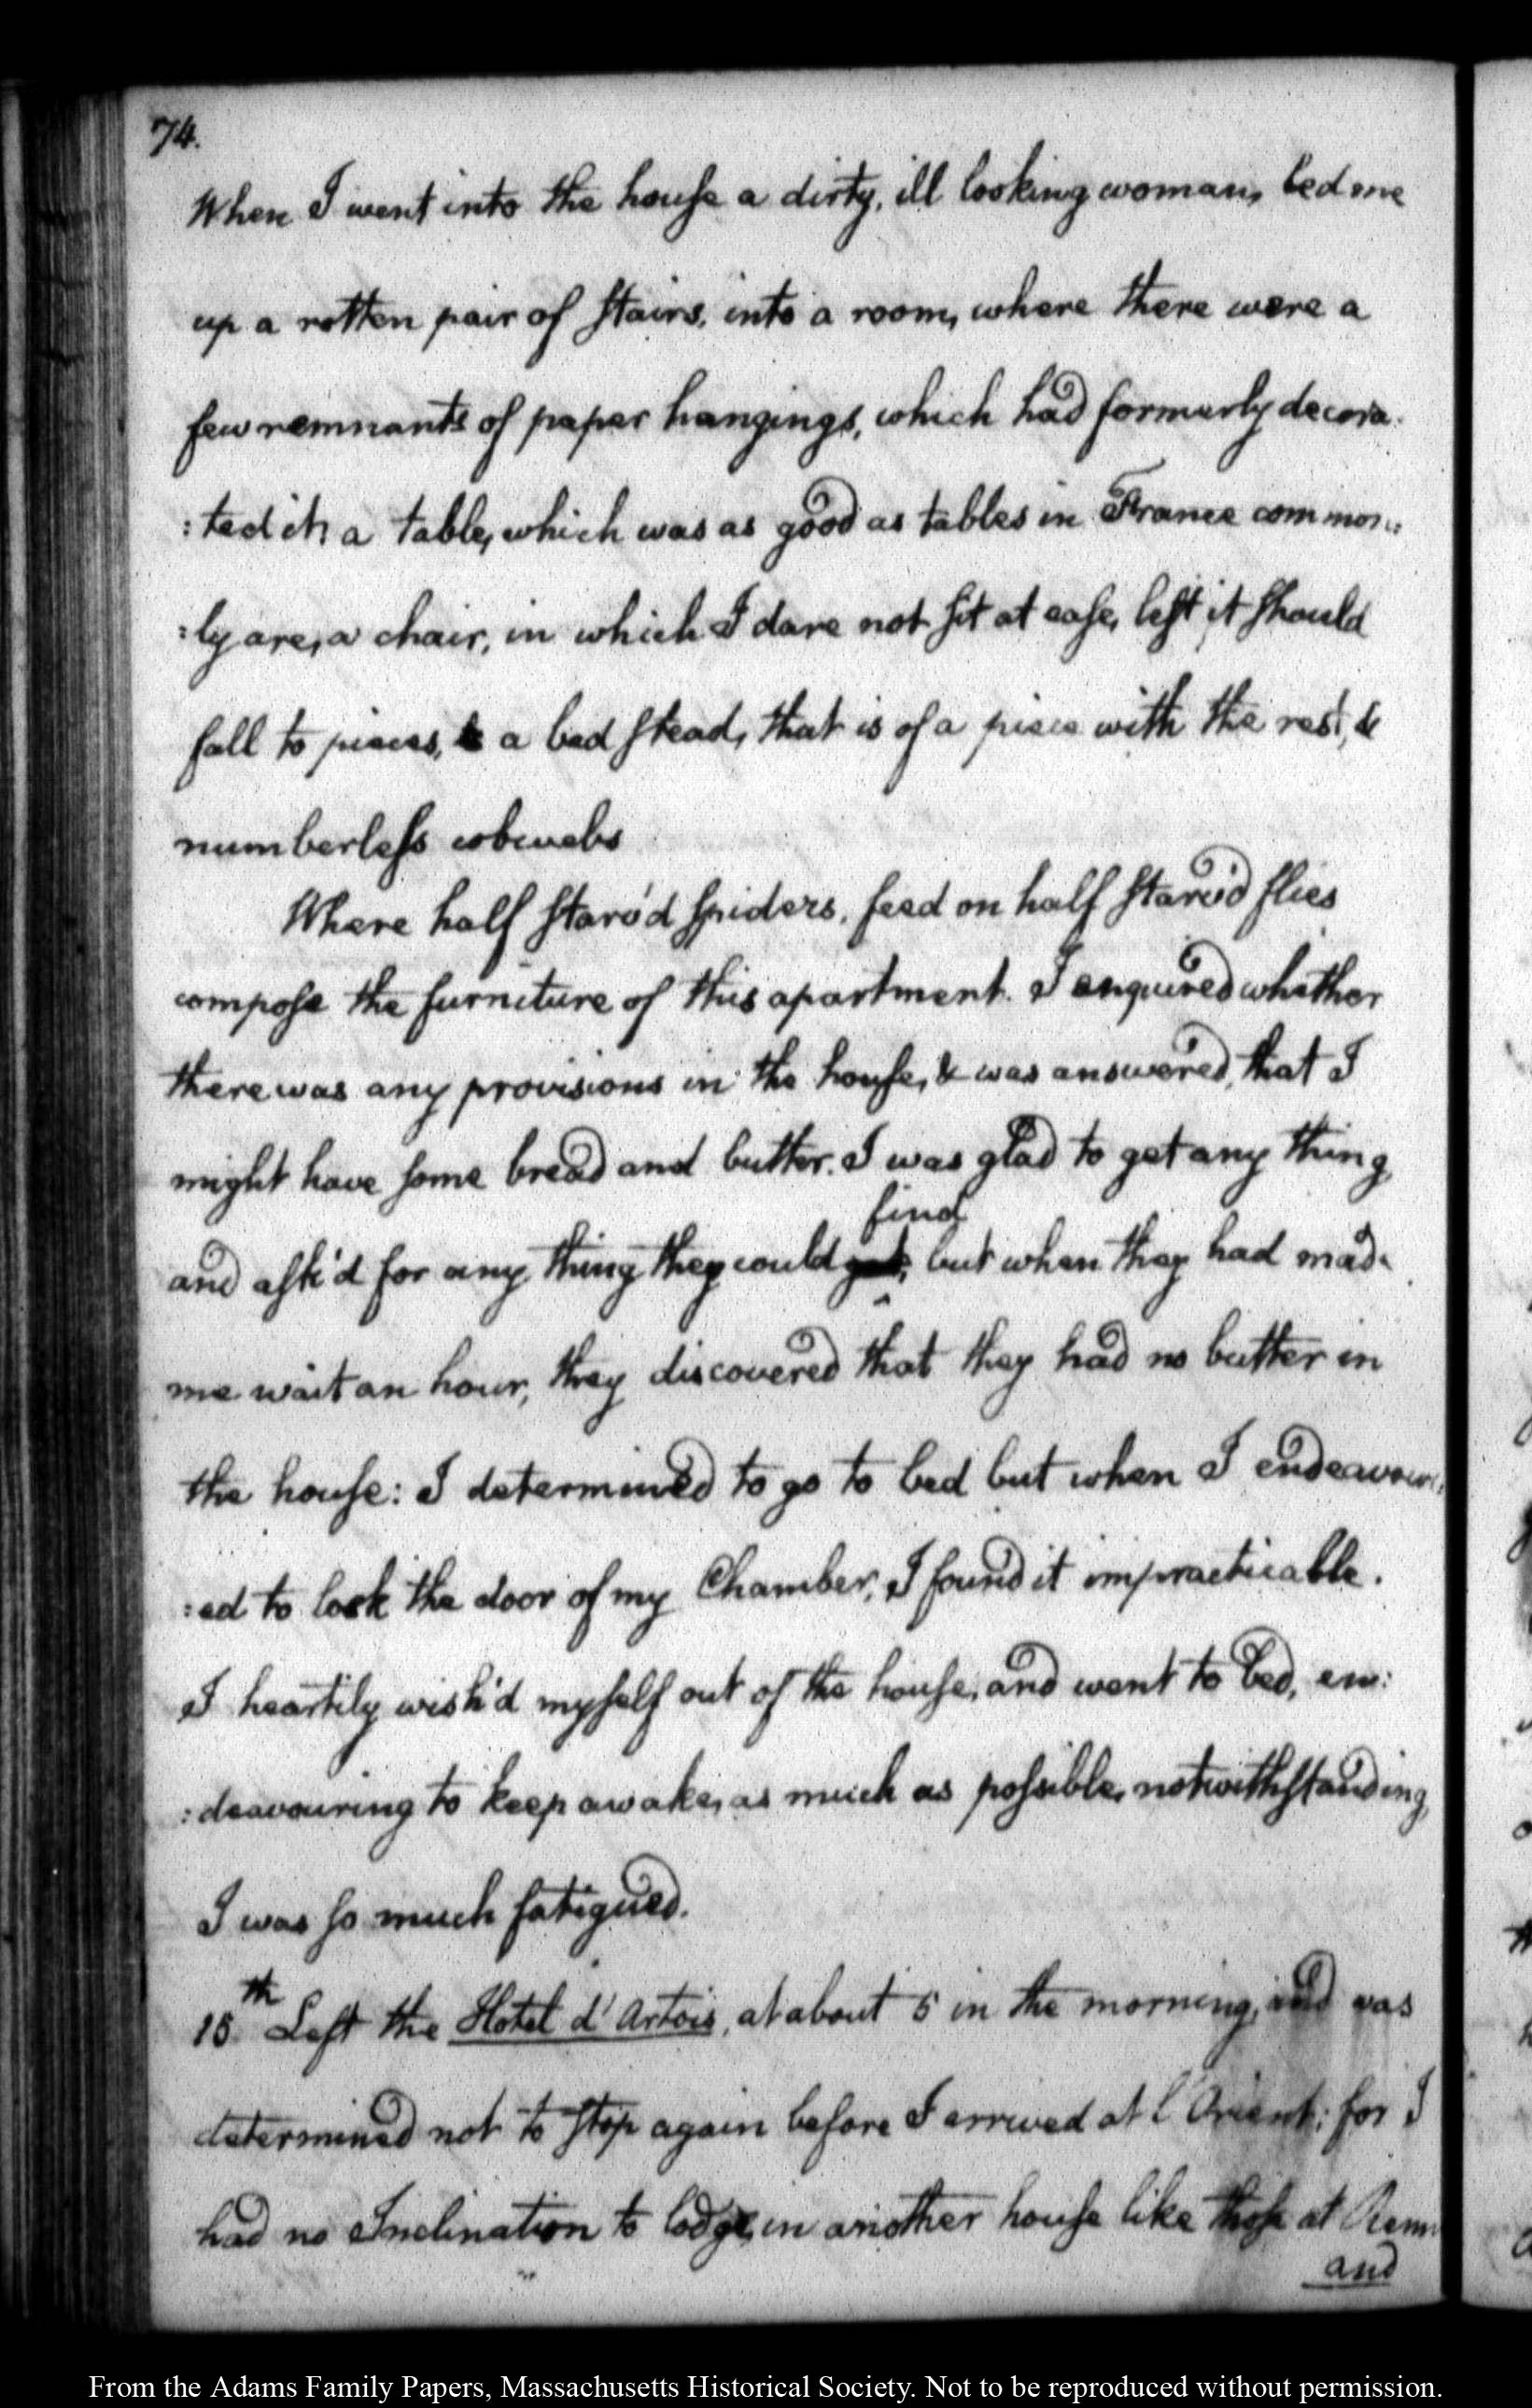 74.
When I went into the house a dirty, ill looking woman, led me
up a rotten pair of stairs, into a room, where there were a
few remnants of paper hangings, which had formerly decora:
:ted it, a table, which was as good as tables in France common:
:ly are, a chair, in which I dare not sit at ease, lest it should
fall to pieces, & a bed stead, that is of a piece with the rest, &
numberless cobwebs
Where half starv'd spiders, feed on half starv'd flies
compose the furniture of this apartment. I enquired whether
there was any provisions in the house, & was answered, that I
might have some bread and butter. I was glad to get any thing,
find
and ask'd for any thing they could get, but when they had made
me wait an hour, they discovered that they had no butter in
the house: I determined to go to bed but when I endeavour:
:ed to lock the door of my Chamber, I found it impracticable.
I heartily wish'd myself out of the house, and went to bed, en:
:deavouring to keep awake, as much as possible, notwithstanding
I was so much fatigued.
15th Left the Hotel d'Artois, at about 5 in the morning, and was
determined not to stop again before I arrived at l'Orient; for I
had no Inclination to lodge, in another house like those at
and
From the Adams Family Papers, Massachusetts Historical Society. Not to be reproduced without permission.